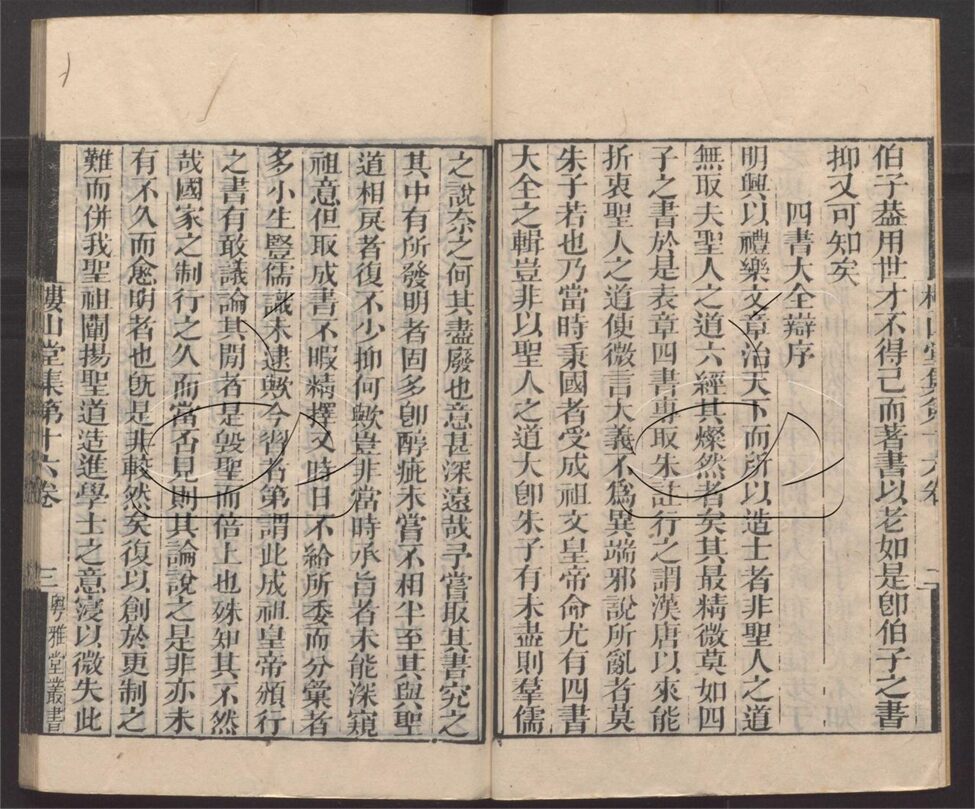 伯子葢用世才不得已而著書以老如是卽伯子之書
抑又可知矣
四書大全辯序
明興以禮樂文章治天下而所以造士者非聖人之道
無取夫聖人之道六經其燦然者矣其最精微莫如四
子之書於是表章四書專取朱註行之謂漢唐以來能
折衷聖人之道使微言大義不爲異端邪說所亂者莫
朱子若也乃當時秉國者受成祖文皇帝命尤有四書
大全之輯豈非以聖人之道大卽朱子有未盡則羣儒
之說奈之何其盡廢也意甚深遠哉尋嘗取其書究之
其中有所發明者固多卽醇疵未嘗不相半至其與聖
道相戾者復不少抑何歟豈非當時承旨者未能深窺
祖意但取成書不暇精擇又時日不給所委而分彙者
多小生豎儒識未逮歟今習者第謂此成祖皇帝頒行
之書有敢議論其閒者是毀聖而倍上也殊知其不然
哉國家之制行之久而當否見則其論說之是非亦未
有不久而愈明者也旣是非較然矣復以創於更制之
難而併我聖祖闡揚聖道造進學士之意寖以微失此
樓山堂集第十六卷
三
粵雅堂叢書